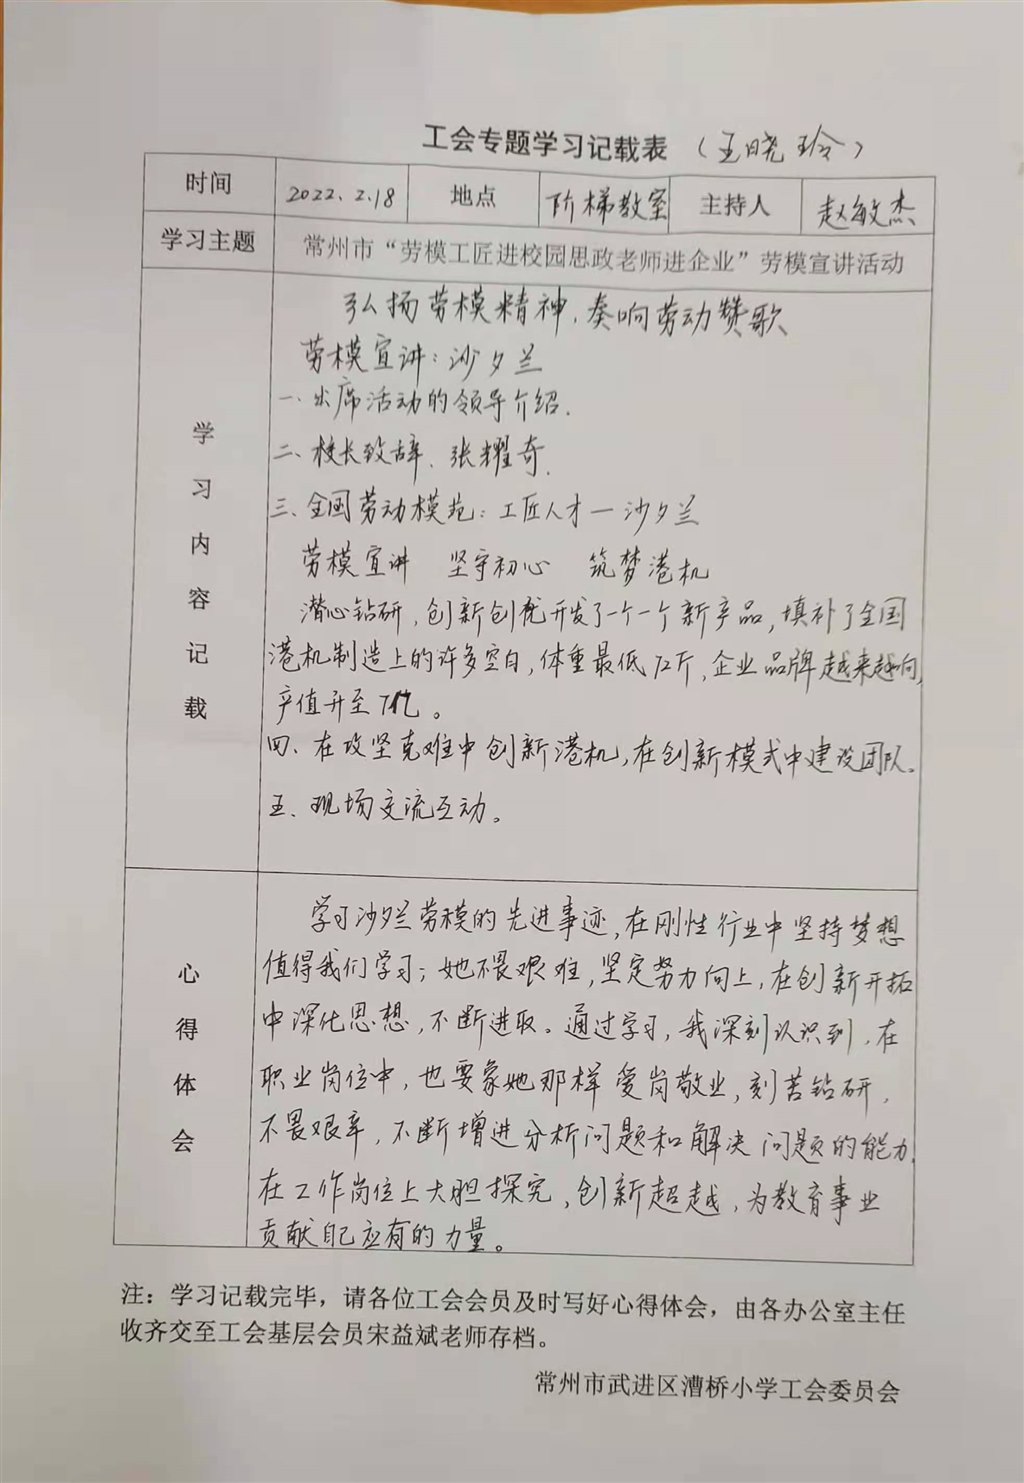 工会专题学习记载表 （王晓玲）
时间 2022.2.18 地点 阶梯教室 主持人 赵敏杰
学习主题 常州市“劳模工匠进校园思政老师进企业”劳模宣讲活动
学习内容记载
弘扬劳模精神，奏响劳动赞歌
劳模宣讲：沙夕兰
一、出席活动的领导介绍.
二、校长致辞、张耀奇.
三、全国劳动模范：工匠人才—沙夕兰
劳模宣讲 坚守初心 筑梦港机
潜心钻研，创新创优开发了一个一个新产品，填补了全国
港机制造上的许多空白，体重最低72斤，企业品牌越来越响，
产值升至7亿。
四、在攻坚克难中创新港机，在创新模式中建设团队。
五、现场交流互动。
心得体会
学习沙夕兰劳模的先进事迹，在刚性行业中坚持梦想
值得我们学习；她不畏艰难，坚定努力向上，在创新开拓
中深化思想，不断进取。通过学习，我深刻认识到，在
职业岗位中，也要象她那样爱岗敬业，刻苦钻研，
不畏艰辛，不断增进分析问题和解决问题的能力，
在工作岗位上大胆探究，创新超越，为教育事业
贡献自己应有的力量。
注：学习记载完毕，请各位工会会员及时写好心得体会，由各办公室主任
收齐交至工会基层会员宋益斌老师存档。
常州市武进区漕桥小学工会委员会